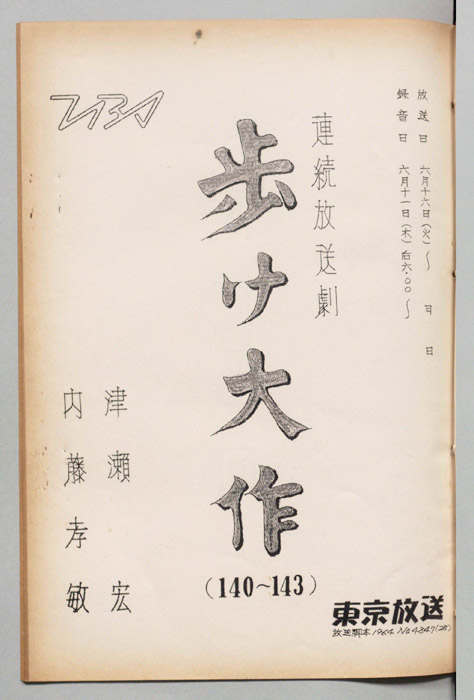 放送日 六月十六日(火)〜 月 日
録音日 六月十一日(木)后六・〇〇〜
連続放送劇
歩け大作
(140~143)
津瀬 宏
内藤孝敏
TBS
東京放送
放送脚本 1964 No 4847(28)